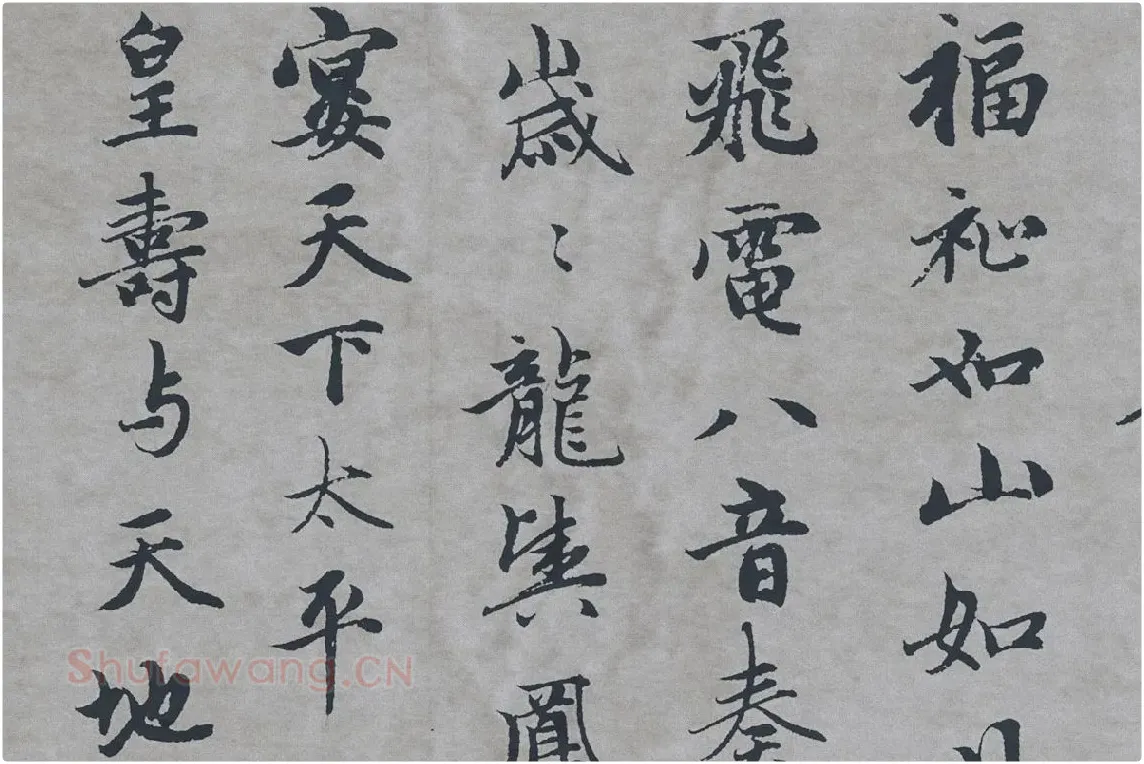 福祉如山如
飛電八音奏
歲〻龍輿
宴天下太平
皇壽与天地
Shufawang.CN